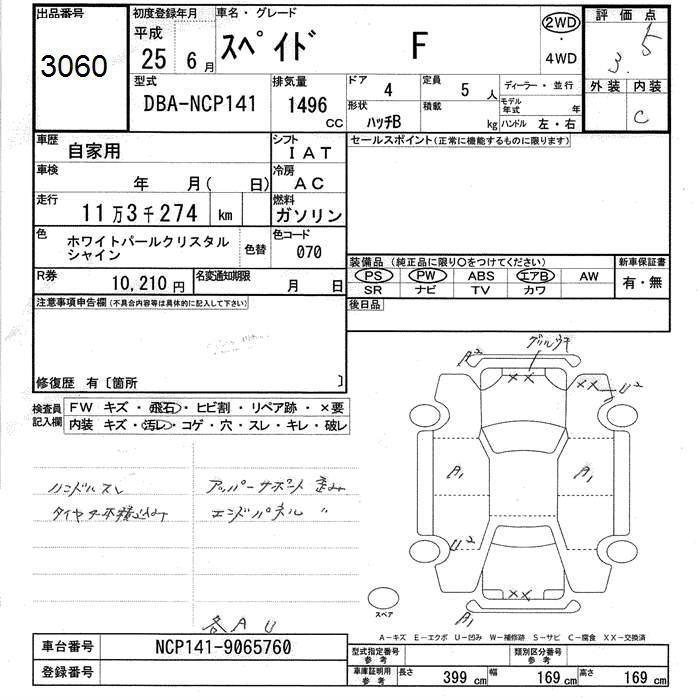 出品番号 初度登録年月 車名・グレード 評価点
3060 平成 25 6月 スペイド F 2WD・4WD 3.5
型式 排気量 ドア 定員 ディーラー・並行 外装 内装
DBA-NCP141 1496 CC 4 5人 モデル年式 年 C
形状 ハッチB 積載 kg ハンドル 左・右
車歴 自家用 シフト IAT セールスポイント(正常に機能するものに限ります)
車検 年 月( 日) 冷房 AC
走行 11万3千274 km 燃料 ガソリン
色 ホワイトパールクリスタルシャイン 色替 色コード 070
装備品 (純正品に限り〇をつけてください) 新車保証書
PS PW ABS エアB AW 有・無
SR ナビ TV カワ
R券 10,210円 名変通知期限 月 日
後日品
注意事項申告欄(不具合内容等は具体的に記入して下さい)
修復歴 有〔箇所 〕
検査員記入欄 FW キズ・飛石・ヒビ割・リペア跡・×要
内装 キズ・汚レ・コゲ・穴・スレ・キレ・破レ
グリルウキ
A2 ×× ×× U2
A1 A1
U2
××
A1
ハンドルスレ アッパーサポート 歪み
タイヤ4本積込み エンドパネル 〃
スペア
各AU
A-キズ E-エクボ U-凹み W-補修跡 S-サビ C-腐食 XX-交換済
車台番号 NCP141-9065760 型式指定番号 参考 類別区分番号 参考
登録番号 車庫証明用 参考 長さ 399 cm 幅 169 cm 高さ 169 cm